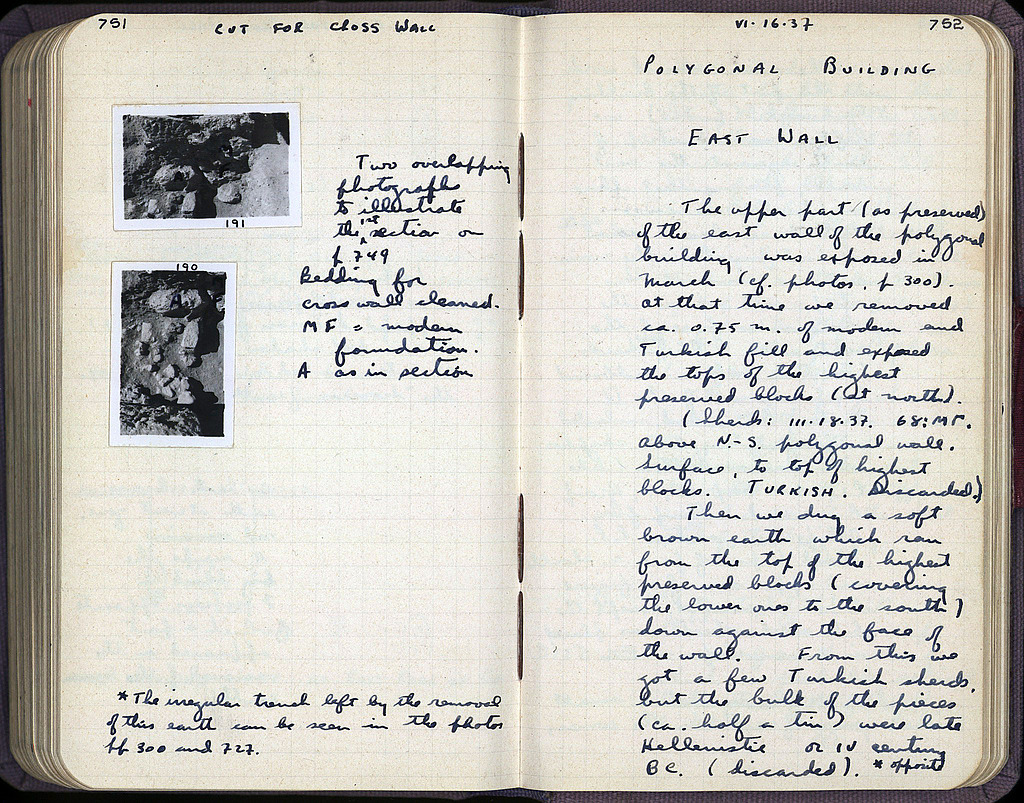 751
CUT FOR CROSS WALL
191
190
A
Two overlapping
photographs
to illustrate
the 1st section on
p 749
Bedding for
cross wall cleaned.
MF = modern
foundation.
A as in section
* The irregular trench left by the removal
of this earth can be seen in the photos
pp 300 and 727.
VI·16·37
752
POLYGONAL BUILDING
EAST WALL
The upper part (as preserved)
of the east wall of the polygonal
building was exposed in
March (cf. photos. p 300).
At that time we removed
ca. 0.75 m. of modern and
Turkish fill and exposed
the tops of the highest
preserved blocks (at north).
(Sherds: III·18·37. 68:ΜΓ.
above N-S. polygonal wall.
Surface, to top of highest
blocks. TURKISH. Discarded.)
Then we dug a soft
brown earth which ran
from the top of the highest
preserved blocks (covering
the lower ones to the south)
down against the face of
the wall. From this we
got a few Turkish sherds,
but the bulk of the pieces
(ca. half a tin) were late
Hellenistic or IV century
BC. (discarded). * opposite